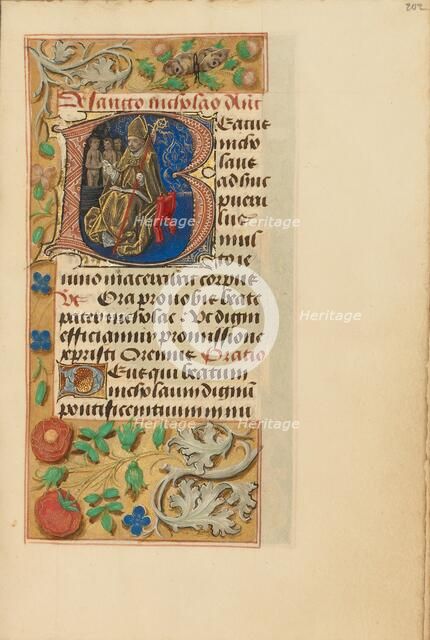 202
De sancto nicholao Ant
Beatus
nicho
laus
adhuc
pueru
lus
mul
to ie
iunio macerabat corpus
Vs Ora pro nobis beate
pater nicholae Vt digni
efficiamur promissione
xpristi Oremus Oratio
Deus qui beatum
nicholaum dignum
pontificem tuum innu
Heritage
Heritage
Heritage
Heritage
Heritage
Heritage